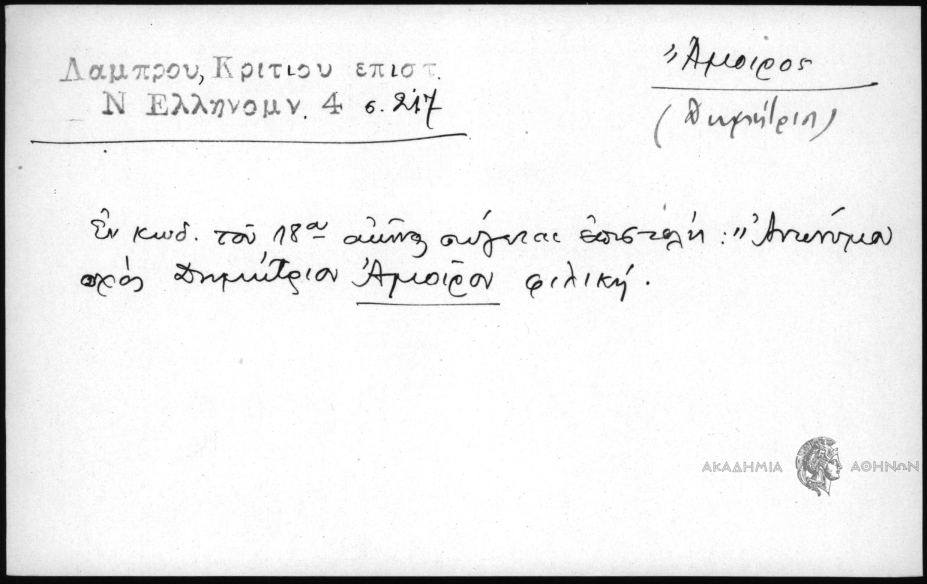 Λαμπρου, Κριτιου επιστ.
Ν Ελληνομν. 4 σ. 217
Ἄμοιρος
(Δημήτριος)
Ἐν κωδ. τοῦ 18ου αἰῶνος σώζεται ἐπιστολή: "Ἀνωνύμου
πρὸς Δημήτριον Ἄμοιρον φιλική.
ΑΚΑΔΗΜΙΑ ΑΘΗΝΩΝ